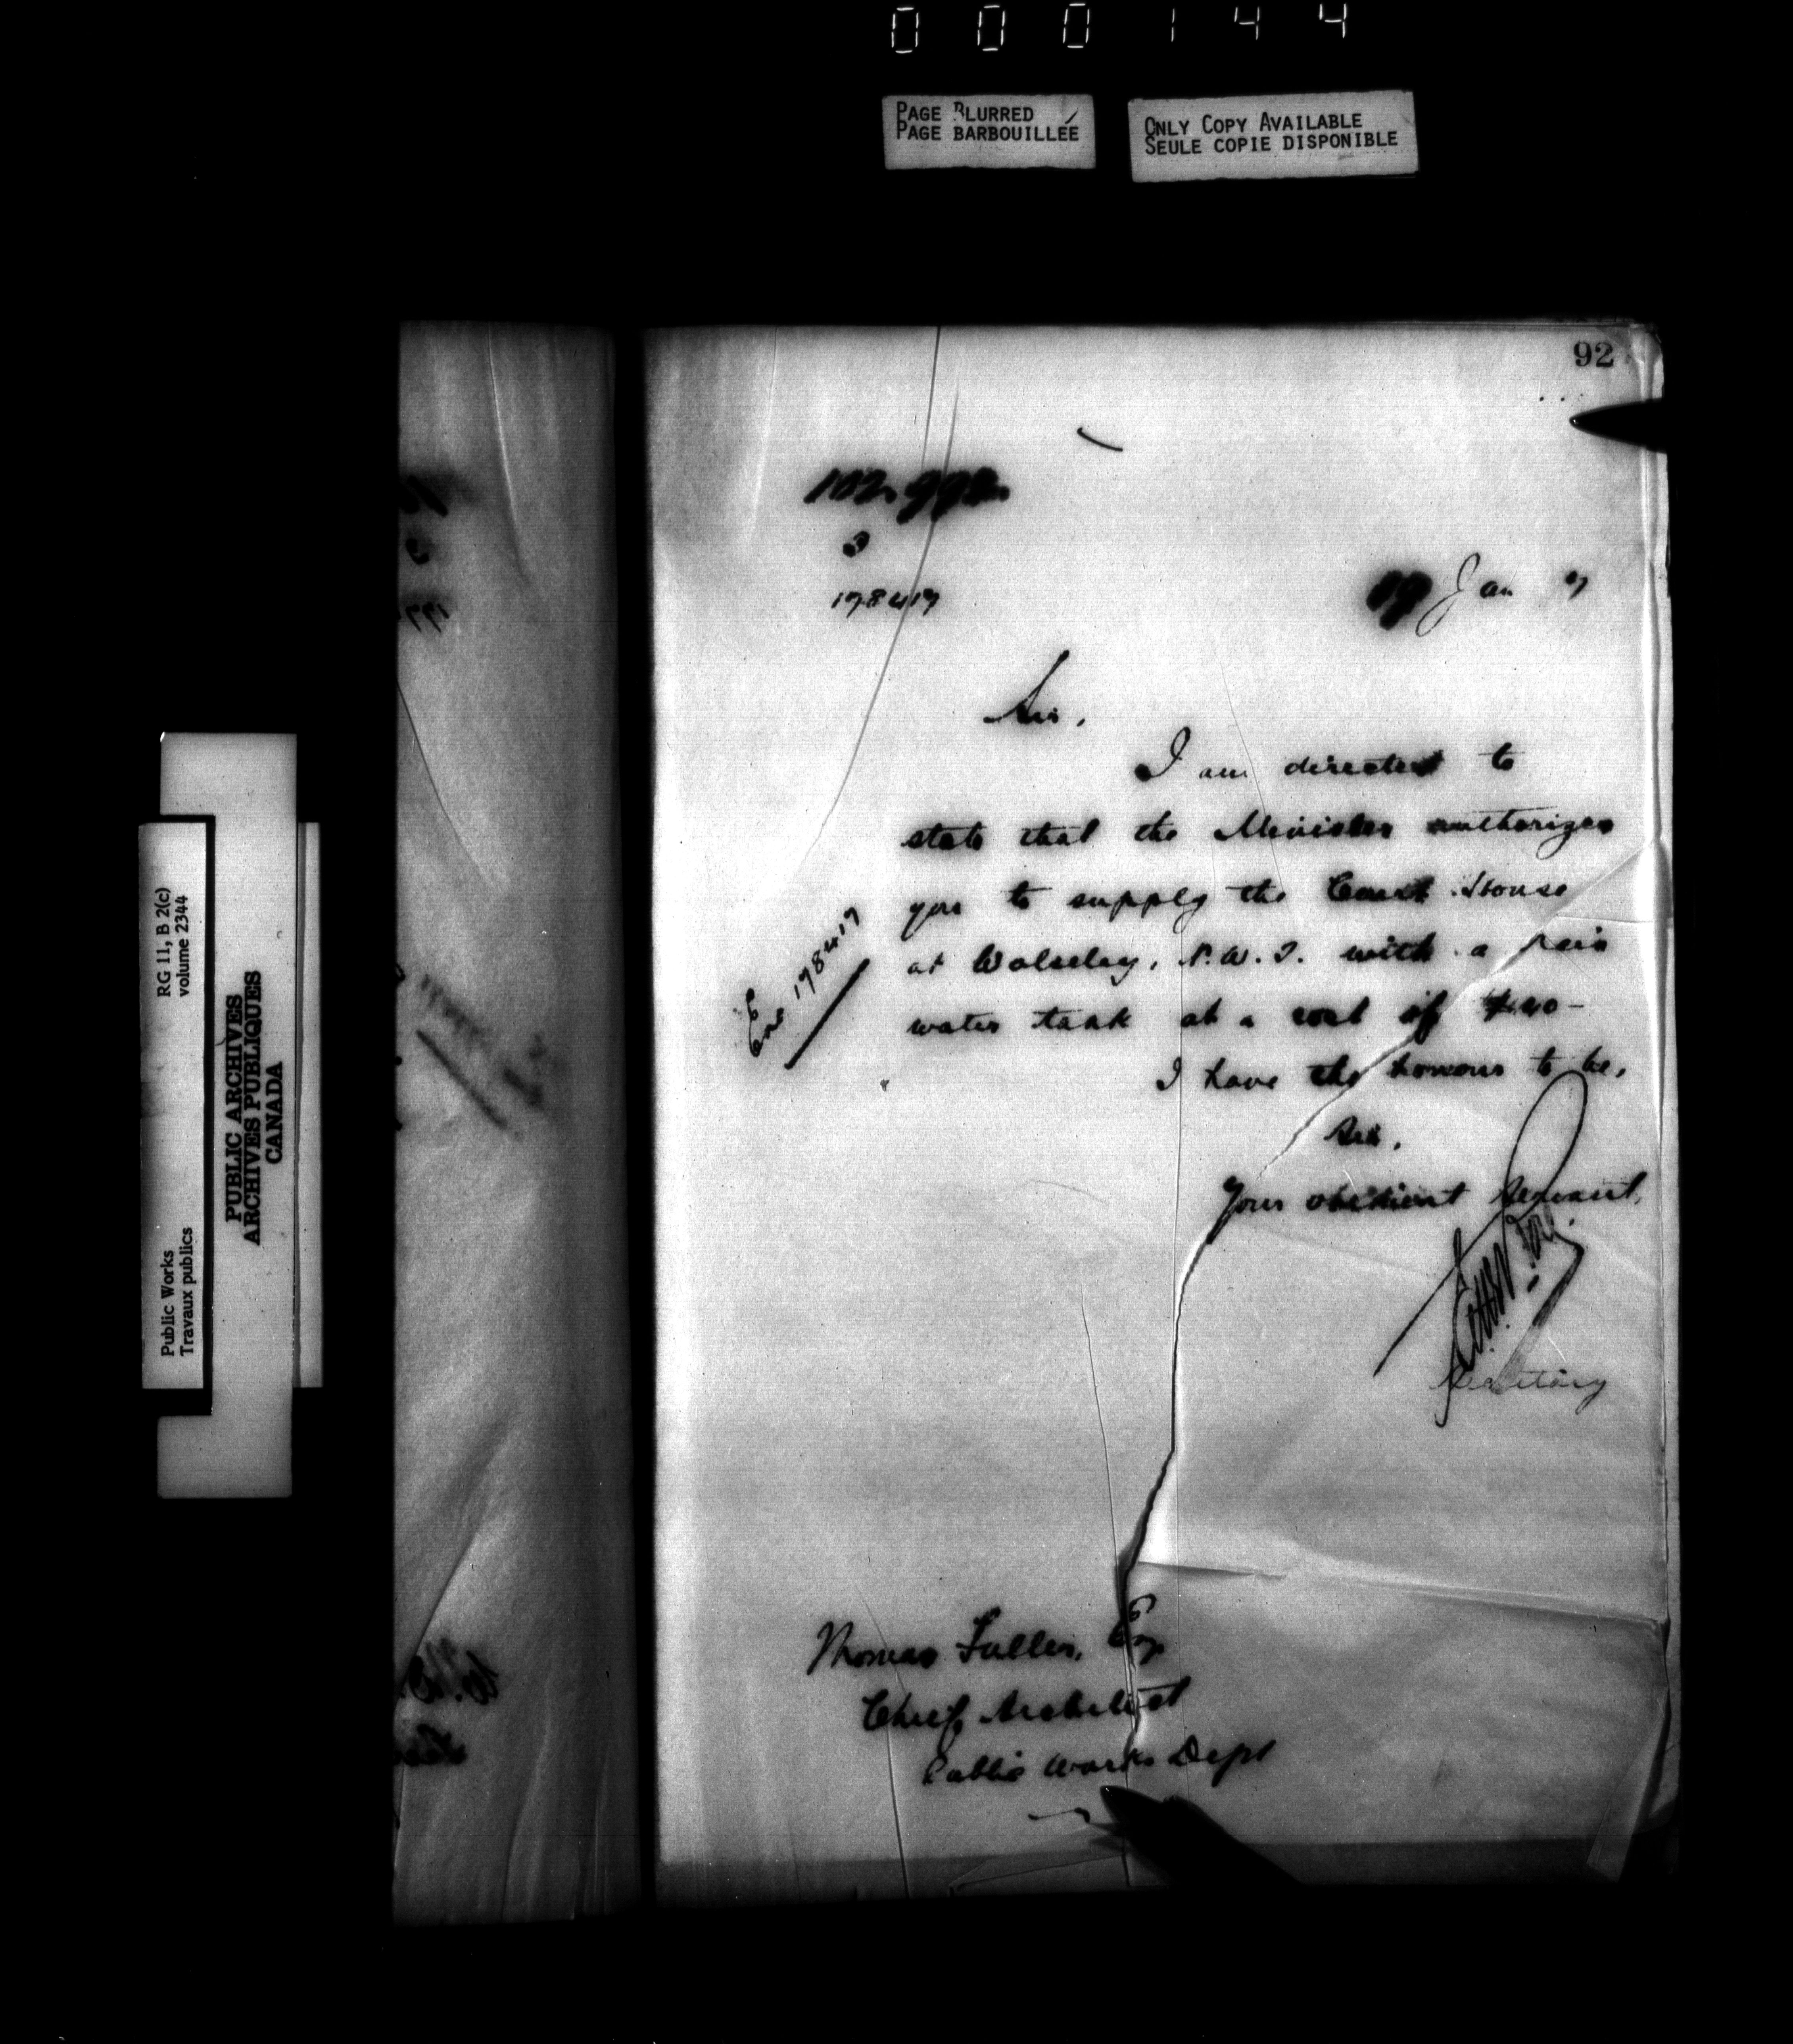 000144
PAGE BLURRED
PAGE BARBOUILLÉE
ONLY COPY AVAILABLE
SEULE COPIE DISPONIBLE
RG 11, B 2(c)
volume 2344
Public Works
Travaux publics
PUBLIC ARCHIVES
ARCHIVES PUBLIQUES
CANADA
92
178417
19 Jan 7
Sir,
I am directed to
state that the Minister authorizes
you to supply the Court House
at Wolseley, N.W.T. with a rain
water tank at a cost of $40-
Enc 178417
I have the honour to be,
Sir,
Your obedient Servant,
Secretary
Thomas Fuller, Esq
Chief Architect
Public Works Dept